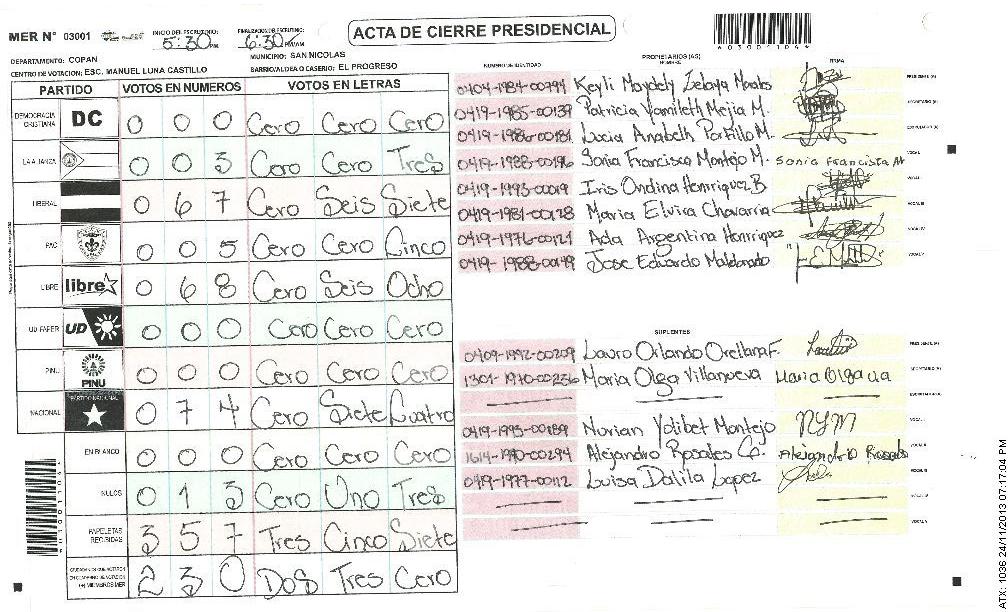 MER N° 03001 INICIO DEL ESCRUTINIO: 5:30 FINALIZACION DE ESCRUTINIO: 6:30 PM/AM ACTA DE CIERRE PRESIDENCIAL
DEPARTAMENTO: COPAN MUNICIPIO: SAN NICOLAS
CENTRO DE VOTACION: ESC. MANUEL LUNA CASTILLO BARRIO/ALDEA O CASERIO: EL PROGRESO
PARTIDO VOTOS EN NUMEROS VOTOS EN LETRAS
DEMOCRACIA CRISTIANA DC 0 0 0 Cero Cero Cero
LA ALIANZA 0 0 3 Cero Cero Tres
LIBERAL 0 6 7 Cero Seis Siete
PAC 0 0 5 Cero Cero Cinco
LIBRE libre 0 6 8 Cero Seis Ocho
UD-FAPER UD 0 0 0 Cero Cero Cero
PINU PINU 0 0 0 Cero Cero Cero
NACIONAL PARTIDO NACIONAL 0 7 4 Cero Siete Cuatro
EN BLANCO 0 0 0 Cero Cero Cero
NULOS 0 1 3 Cero Uno Tres
PAPELETAS RECIBIDAS 3 5 7 Tres Cinco Siete
CIUDADANOS QUE VOTARON EN CUADERNO DE VOTACION (+) MIEMBROS MER 2 3 0 Dos Tres Cero
PROPIETARIOS (AS)
NUMERO DE IDENTIDAD NOMBRE FIRMA
0404-1984-00994 Keyli Maydely Zelaya PRESIDENTE (A)
0419-1985-00139 Patricia Yamileth Mejia M. SECRETARIO (A)
0419-1986-00181 Lucia Anabeth Portillo M. ESCRUTADOR (A)
0419-1988-00196 Sonia Francisca Montejo M. Sonia Francisca M VOCAL I
0419-1993-00019 Iris Ondina Henriquez B
0419-1981-00128 Maria Elvira Chavarria VOCAL III
0419-1976-00121 Ada Argentina Henriquez VOCAL IV
0419-1988-00149 Jose Eduardo Maldonado VOCAL V
SUPLENTES
0409-1992-00209 Lauro Orlando Orellana F. PRESIDENTE (A)
1301-1970-00236 Maria Olga Villanueva Maria Olga SECRETARIO (A)
ESCRUTADOR (A)
0419-1993-00189 Norian Yolibet Montejo NYM VOCAL I
1614-1990-00294 Alejandro Rosales G. Alejandro Rosales
0419-1977-00112 Luisa Dalila Lopez
VOCAL V
ATX: 1036 24/11/2013 07:17:04 PM